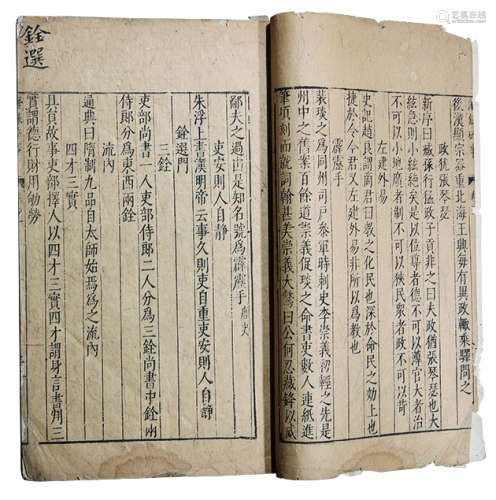 後漢顯宗器重北海王興每有異政輒乘驛問之
政猶張琴瑟
新序曰臧孫行猛政子貢非之曰夫政猶張琴瑟也大
絃急則小絃絶矣是以位尊者德不可以薄官大者治
不可以小地廣者制不可以狹民衆者政不可以苛
左建外易
史記趙良謂商君曰教之化民也深於命民之効上也
捷於令今君又左建外易非所以爲教也
霹靂手
裴琰之爲同州司户叅軍時刺史李崇義
州中
舊案百餘道崇義促琰之命書吏數人連紙進
筆頃刻而就詞翰甚美崇義大驚曰公何忍藏鋒以成
鄙夫之過由是知名號爲霹靂手
吏安則人自靜
朱浮上書漢明帝云事久則吏自重吏安則人自靜
銓選門
三銓
吏部尚書一人吏部侍郎二人分爲三銓尚書中銓兩
侍郎分爲東西兩銓
流內
通典曰隋制九品自太師始焉爲之流內
四才三實
且貞故事吏部擇人以四才三實四才謂身言書判三
實謂德行財用勞
銓選
艺典中国